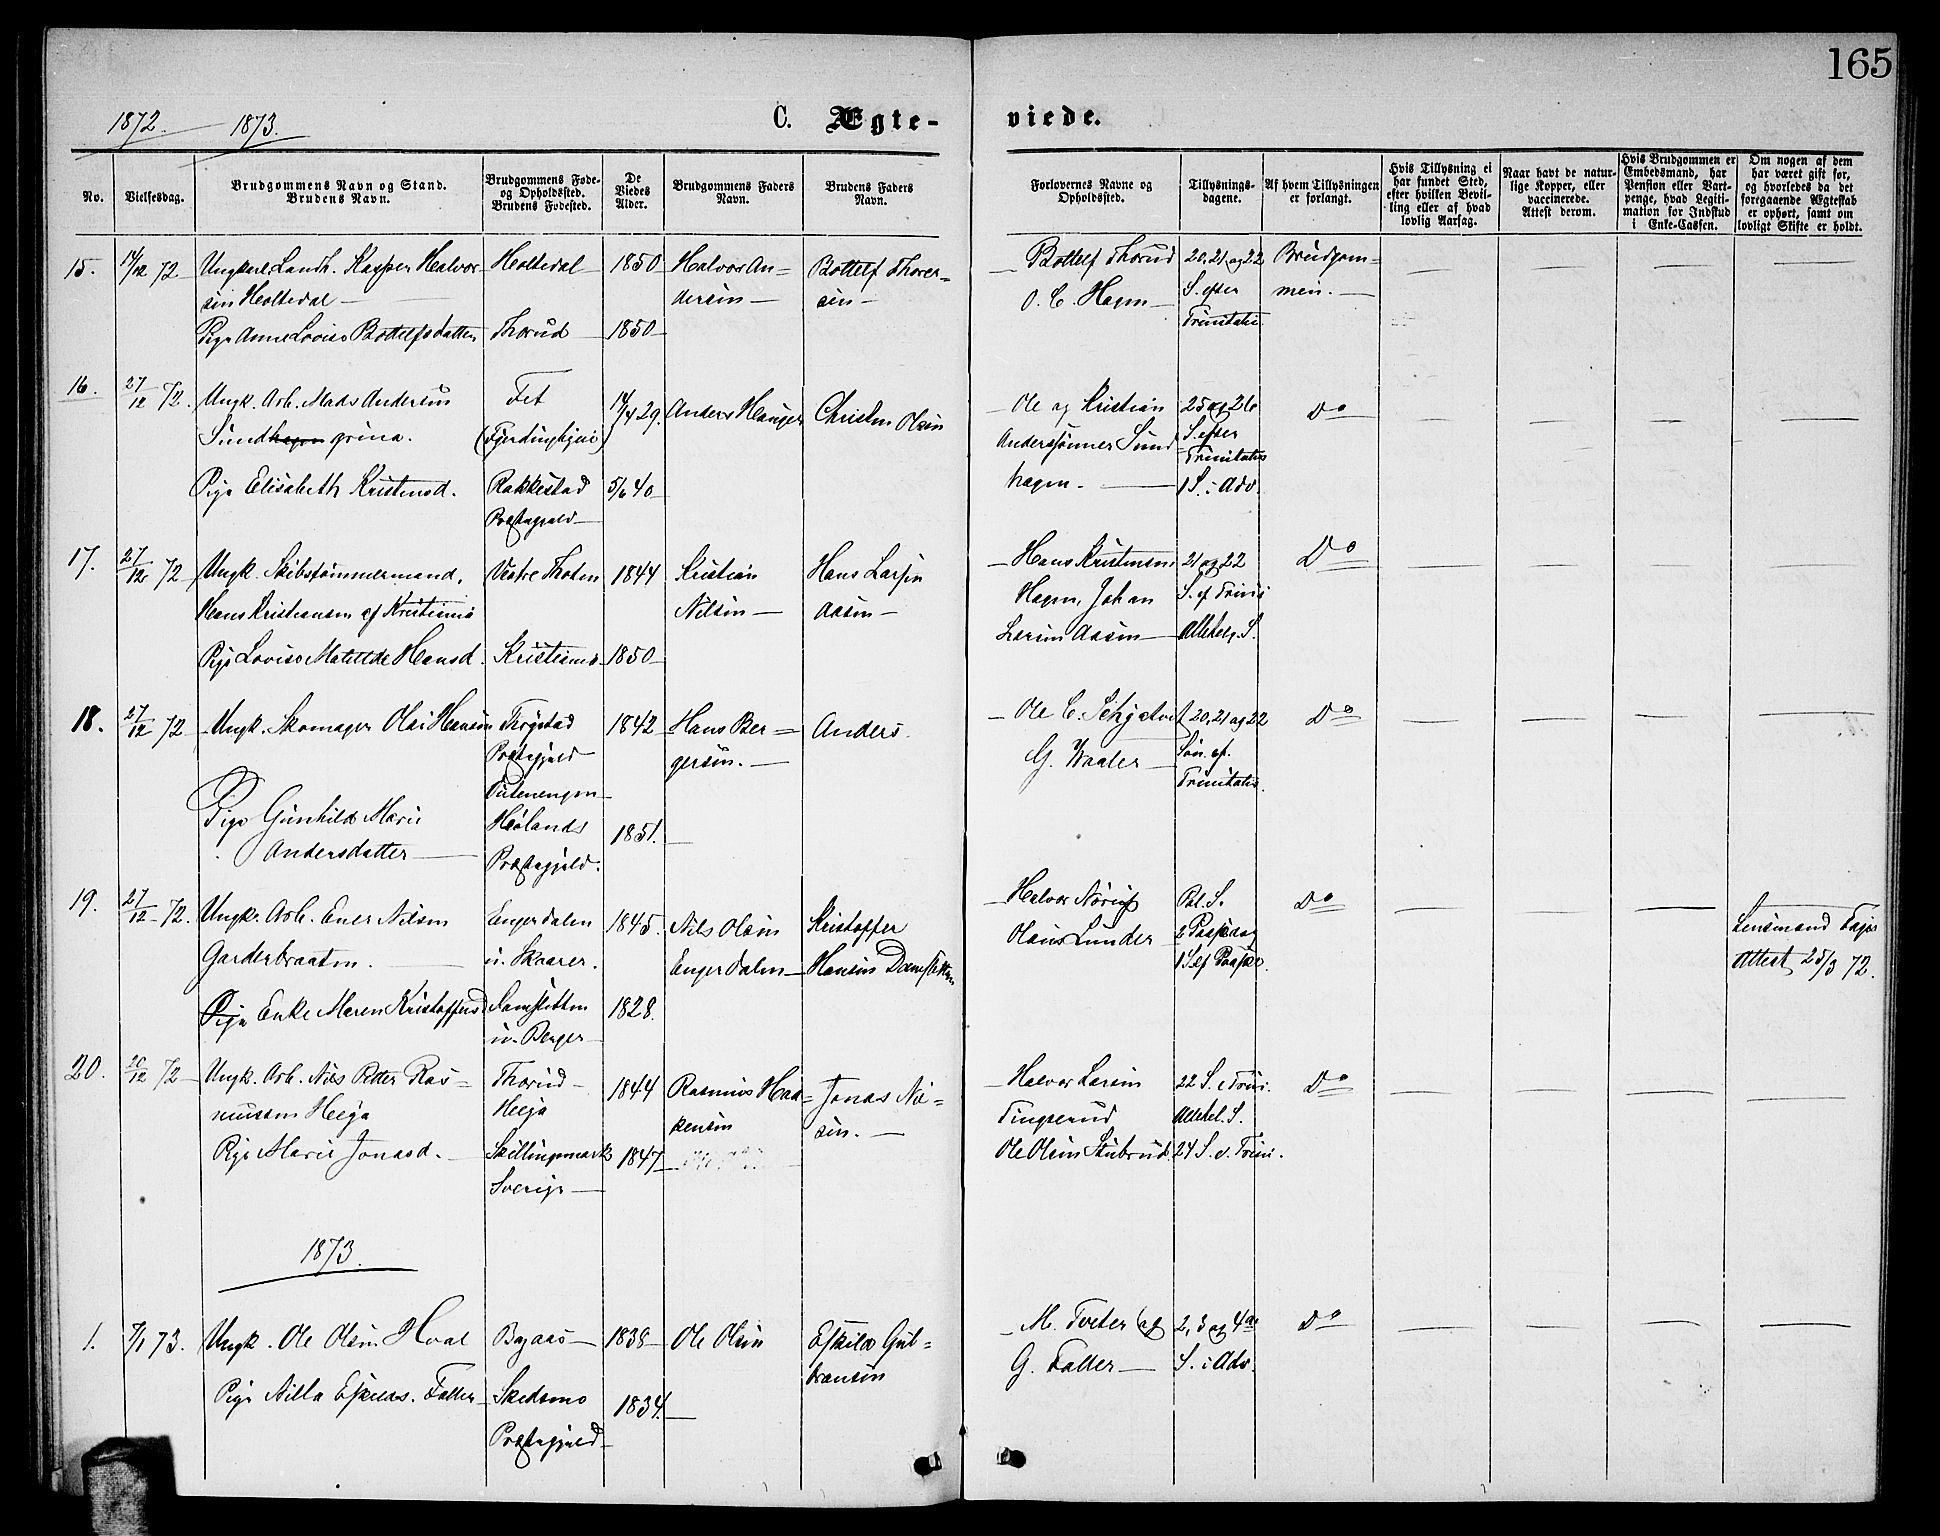 165
1872 1873.
C. Ægte-viede.
No.
Vielsesdag.
Brudgommens Navn og Stand.
Brudens Navn.
Brudgommens Føde-
og Opholdssted.
Brudens Fødested.
De
Viedes
Alder.
Brudgommens Faders
Navn.
Brudens Faders
Navn.
Forlovernes Navne og
Opholdssted.
Tillysnings-
dagene.
Af hvem Tillysningen
er forlangt.
Hvis Tillysning ei
har fundet Sted,
efter hvilken Bevil-
ling eller af hvad
lovlig Aarsag.
Naar havt de natur-
lige Kopper, eller
vaccinerede.
Attest derom.
Hvis Brudgommen er
Embedsmand, har
Pension eller Vart-
penge, hvad Legiti-
mation for Indskud
i Enke-Cassen.
Om nogen af dem
har været gift før,
og hvorledes da det
foregaaende Ægteskab
er ophørt, samt om
lovligt Skifte er holdt.
15. 72
Ungkarl Landh. Kasper Halvor-
sen Holtedal
Pige Anne Lovise Bottelfsdatter
Holtedal
Thorud
1850
1850
Halvor An-
dersen
Bottelf Thorer-
sen
Bottelf Thorud
O. C. Hagen
20, 21 og 22
S. efter
Trinitatis
Brudgom-
men.
16. 27/12 72.
Ungk. Arb. Mads Andersen
Sundhagen grina.
Pige Elisabeth Kristensd.
Fet
Rakkestad
Præstegjeld
14/4 29.
5/6 40
Anders Hauger
Christen Olsen
Ole og Kristian
Anderssønner Sund-
hagen.
25 og 26
S. efter
Trinitatis
1 S. i Adv.
Do
17. 27/12 72
Ungk. Skibstømmermand,
Hans Kristiansen af Kristiania
Pige Lovise Matilde Hansd.
Vestre Thoten
Kristiania
1844
1850
Kristian
Nilsen
Hans Larsen
Aasen
Hans Kristensen
Hagen, Johan
Larsen Aasen
21 og 22
S. ef Trini
Allehelg. S.
Do
18. 27/12 72
Ungk. Skomager Olai Hansen
Pige Gunhild Marie
Andersdatter
Trøgstad
Præstegjeld
Hølands
Præstegjeld.
1842
1851.
Hans Ber-
gersen.
Anders
Ole C.
G. Waaler
20, 21 og 22
Søn. ef.
Trinitatis.
Do
19. 27/12 72.
Ungk. Arb. Ener Nilsen
Garderbraaten.
Pige Enke Maren Kristoffersd
Engerdalen
u. Skaarer.
Damsletten
u. Berger
1845.
1828.
Nils Olsen
Engerdalen
Kristoffer
Hansen Damsletten
Halvor
Olaus Lunder
Pal. S.
2 Paaskedag
1 S. ef Paaske.
Do
Lensmand
Attest 25/3 72.
20. 72
Ungk. Arb. Nils Petter Ras-
mussen Heija
Pige Marie Jonasd.
Thorud-
Heija
Skillingsmark
Sverige
1844
1847
Rasmus Haa-
kensen
Jonas Nil-
sen.
Halvor Larsen
Tingserud
Ole Olsen Stubrud
22 S. e Trini.
Allehel. S.
24 S. e. Trini.
Do
1873.
1. 7/1 73.
Ungk. Ole Olsen Hval
Pige Nilla Eskilds. Faller
Bagaas
Skedsmo
Præstegjeld
1838
1834.
Ole Olsen
Eskild Gul-
bransen
M. Tveter og
G. Faller
2, 3 og 4de
S. i Adv.
Do